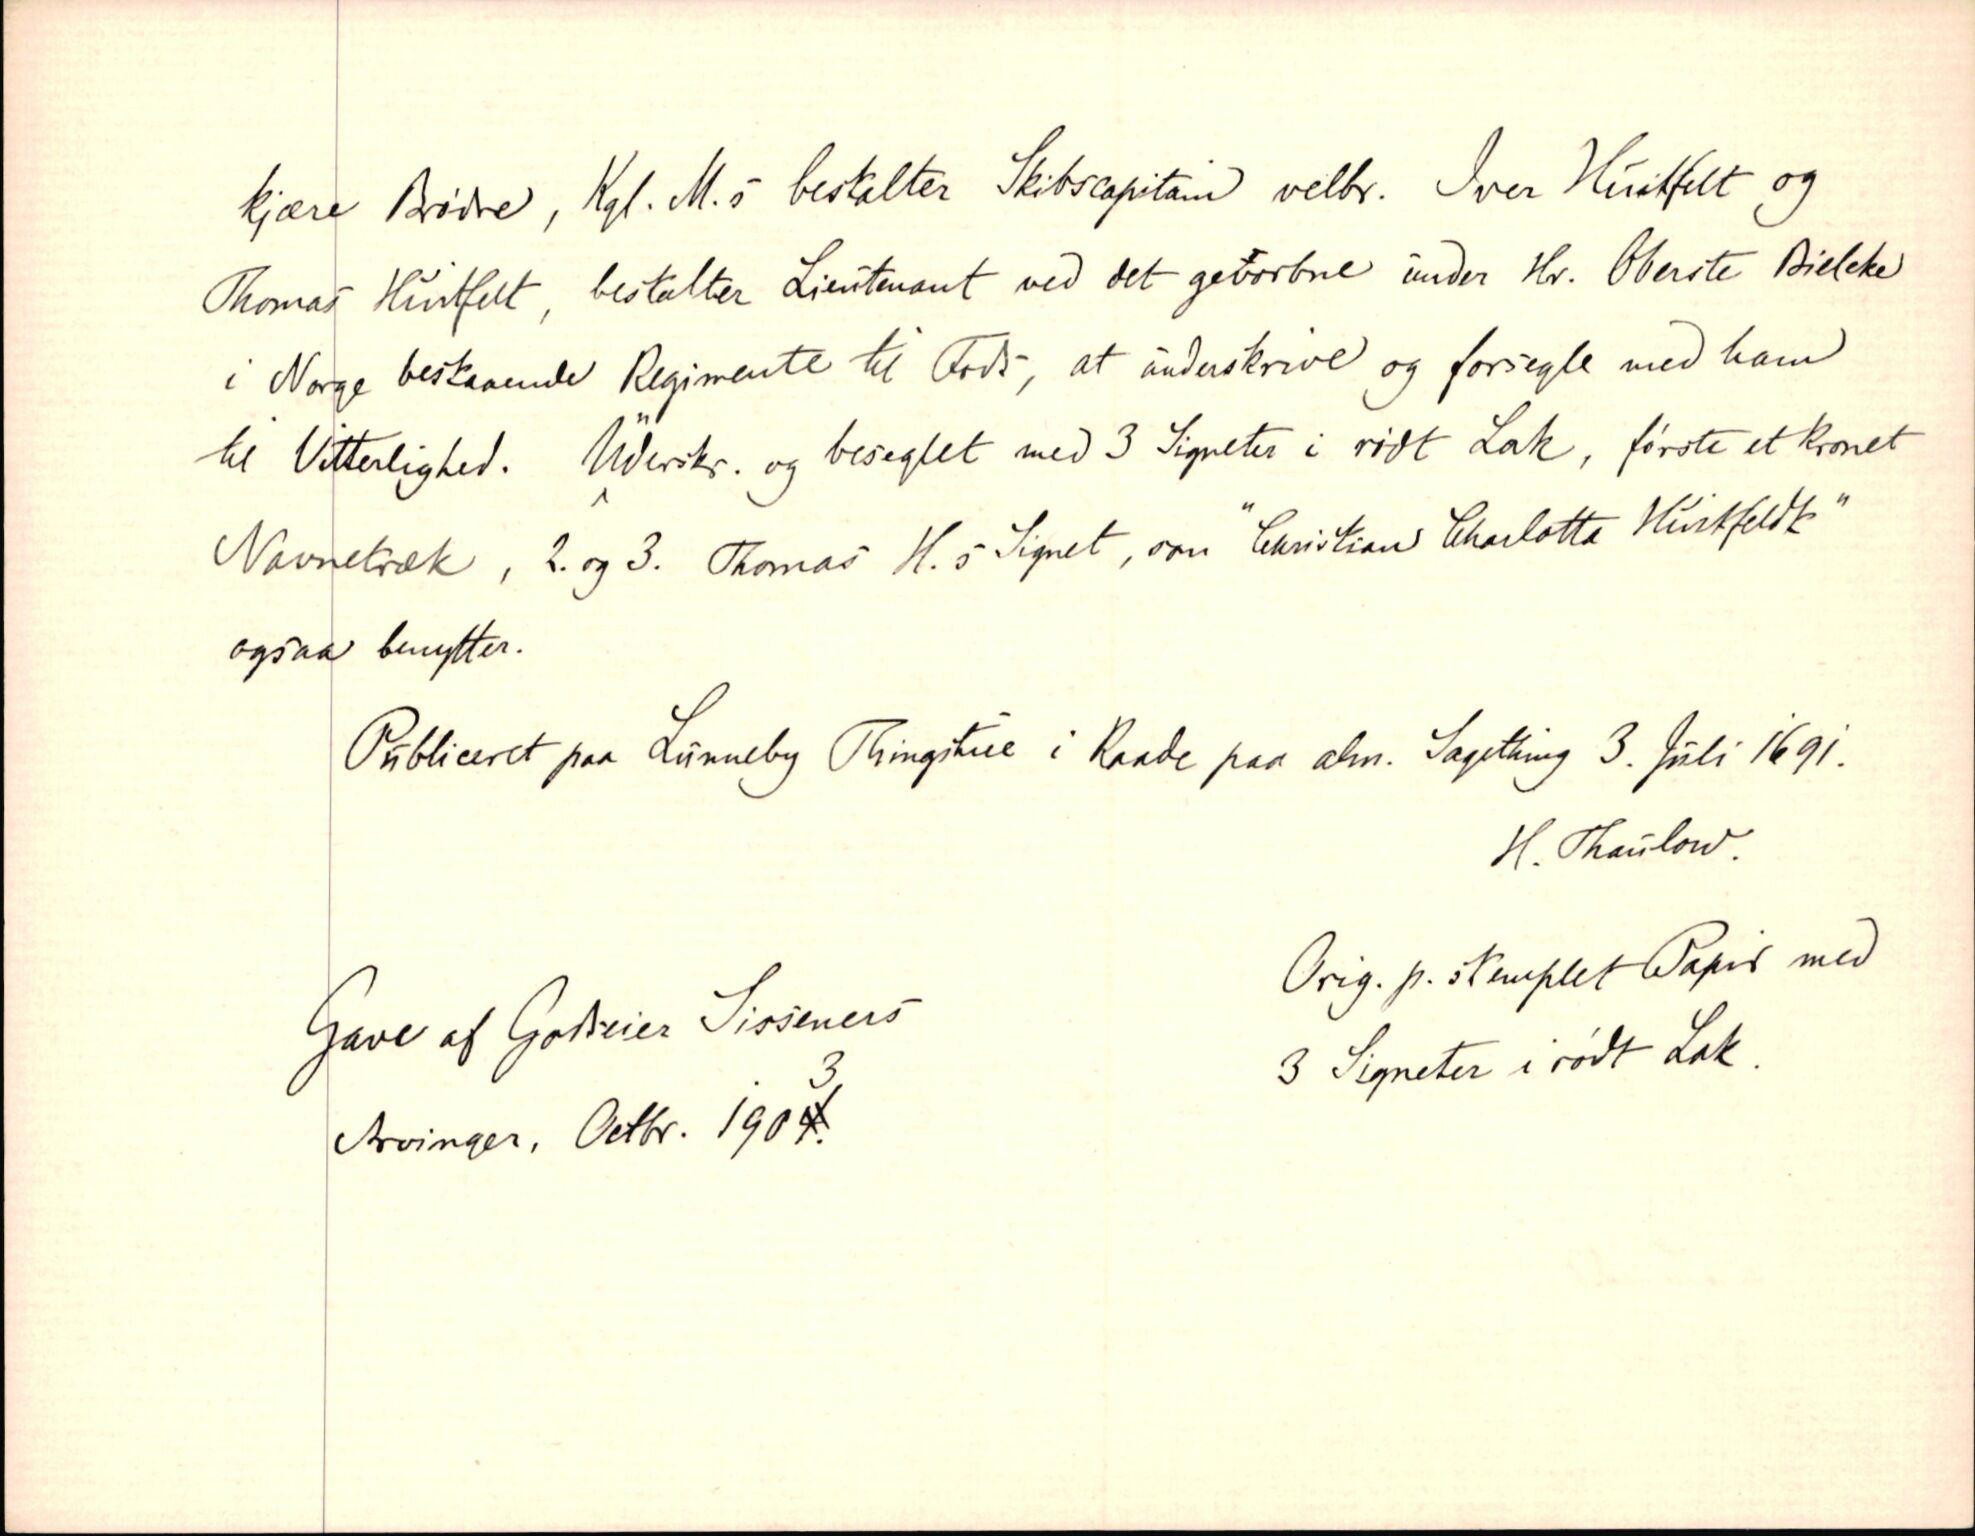 kjære Brødre, Kgl. M.s bestalter Skibscapitain velbr. Iver Huitfelt og
Thomas Huitfelt, bestalter Lieutenant ved det gevorbne under Hr. Oberste Bielcke
i Norge bestaaende Regimente til Fods, at underskrive og forsegle med ham
til Vitterlighed. Uderskr. og beseglet med 3 Signeter i rødt Lak, første et kronet
Navnetræk, 2. og 3. Thomas H.s Signet, som "Christian Charlotta Huitfeldt"
ogsaa benytter.
Publiceret paa Lunneby Thingstue i Raade paa alm. Sagething 3. Juli 1691.
H. Thaulow.
Orig. p. stemplet Papir med
3 Signeter i rødt Lak.
Gave af Godseier Sisseners
Arvinger, Octbr. 1903.